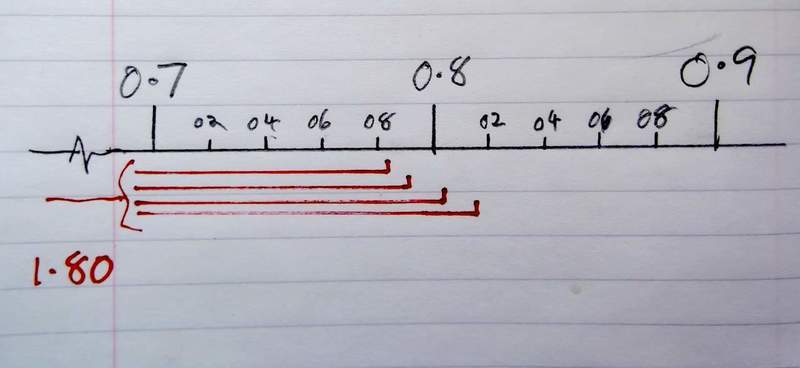 0.7 0.8 0.9
02 04 06 08 02 04 06 08
1.80